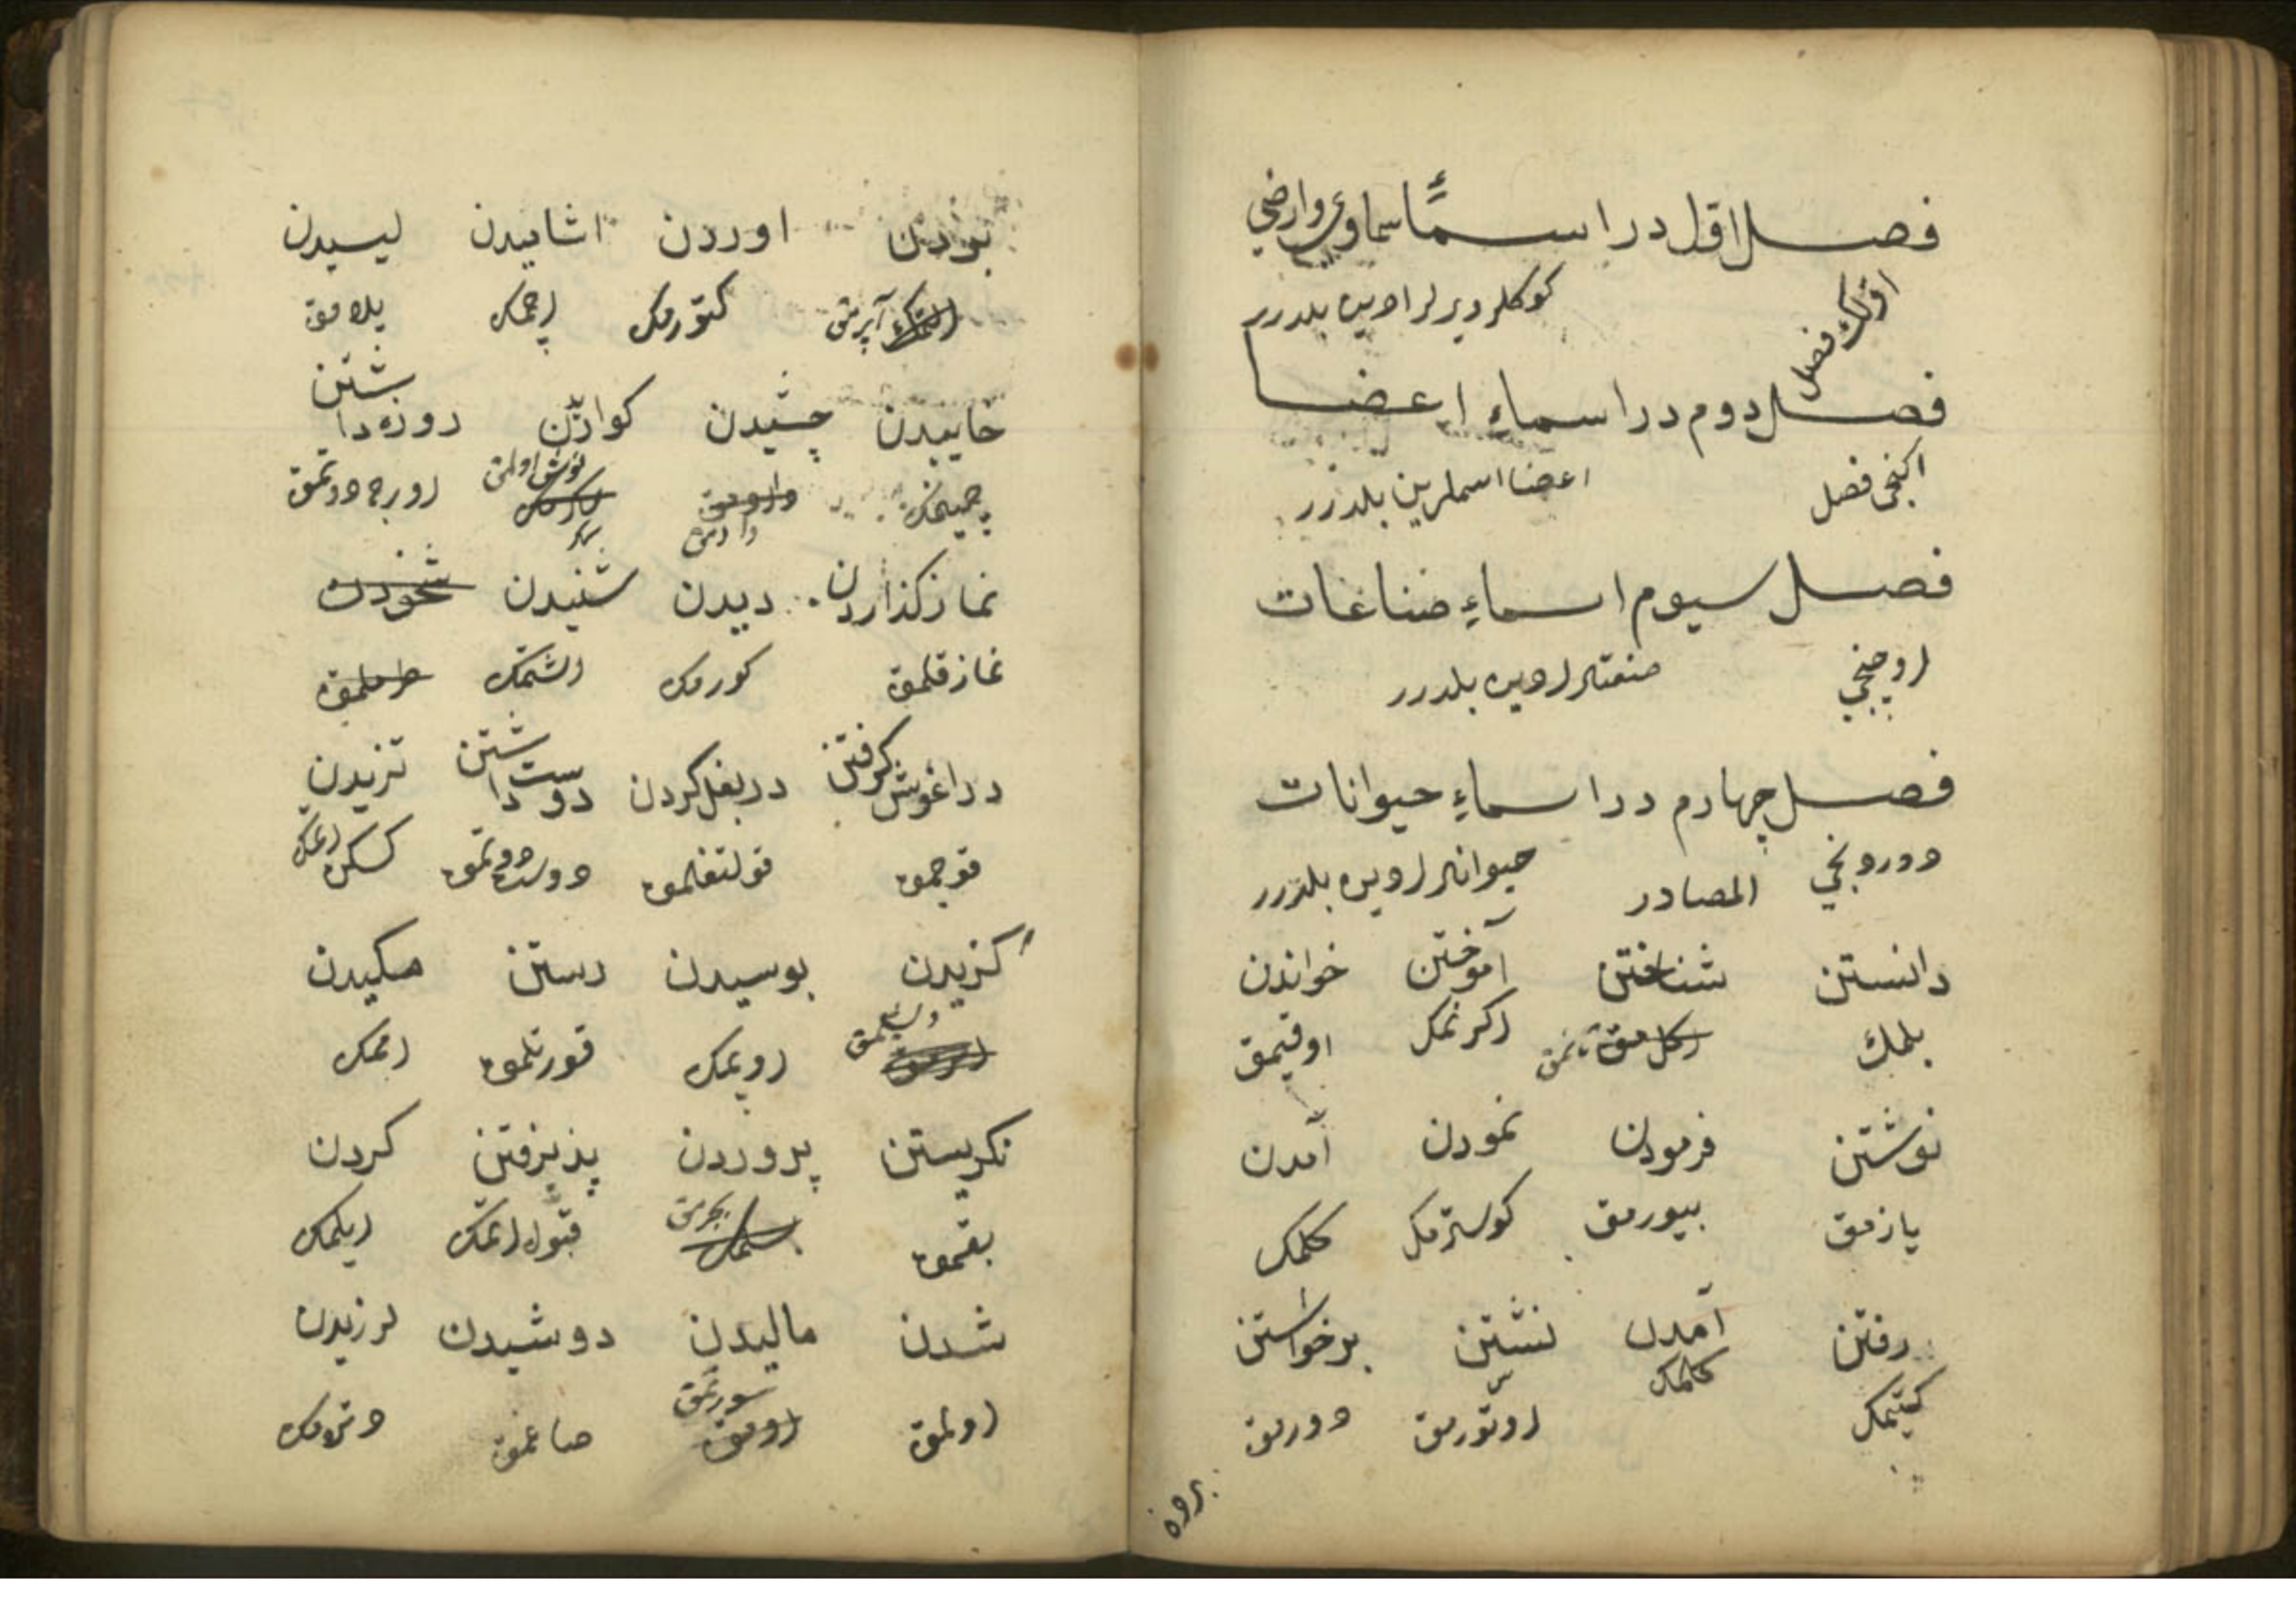 فصل اول در اسماء سماوی وارضی
اولك فصل كوكلر ویرلر ادین بلدرر
فصل دوم در اسماء اعضا
اكنجی فصل اعضا اسملرین بلدرر
فصل سیوم اسماء صناعات
اوچنجی صنعتلر ادین بلدرر
فصل چهارم در اسماء حیوانات
دوردنجی المصادر حیوانلر ادین بلدرر
دانستن شناختن آموختن خواندن
بلمك اكلامق اكرنمك اوقیمق
نوشتن فرمودن نمودن آمدن
یازمق بیورمق كوسترمك كلمك
رفتن آمدن نشتن برخواستن
كیتمك كلمك اوتورمق دورمق
بردن
بودن اوردن اشامیدن لیسیدن
التمك آپرمق كتورمك اچمك یلامق
خاییدن چشیدن كواردن روزه داشتن
چینمك نوش اولمق اورج دوتمق
نماز كذاردن دیدن شنیدن
نماز قلمق كورمك اشتمك
در اغوش كرفتن در بغل كردن دوست داشتن تزیدن
قوجمق قولتقلمق دوست دوتمق
كزیدن بوسیدن رستن مكیدن
اوپمك قورتلمق اممك
نكریستن پروردن پذیرفتن كردن
بقمق بسلمك قبول اتمك ایلمك
شدن مالیدن دوشیدن لرزیدن
اولمق اومق سورتمق صاغمق دترمك